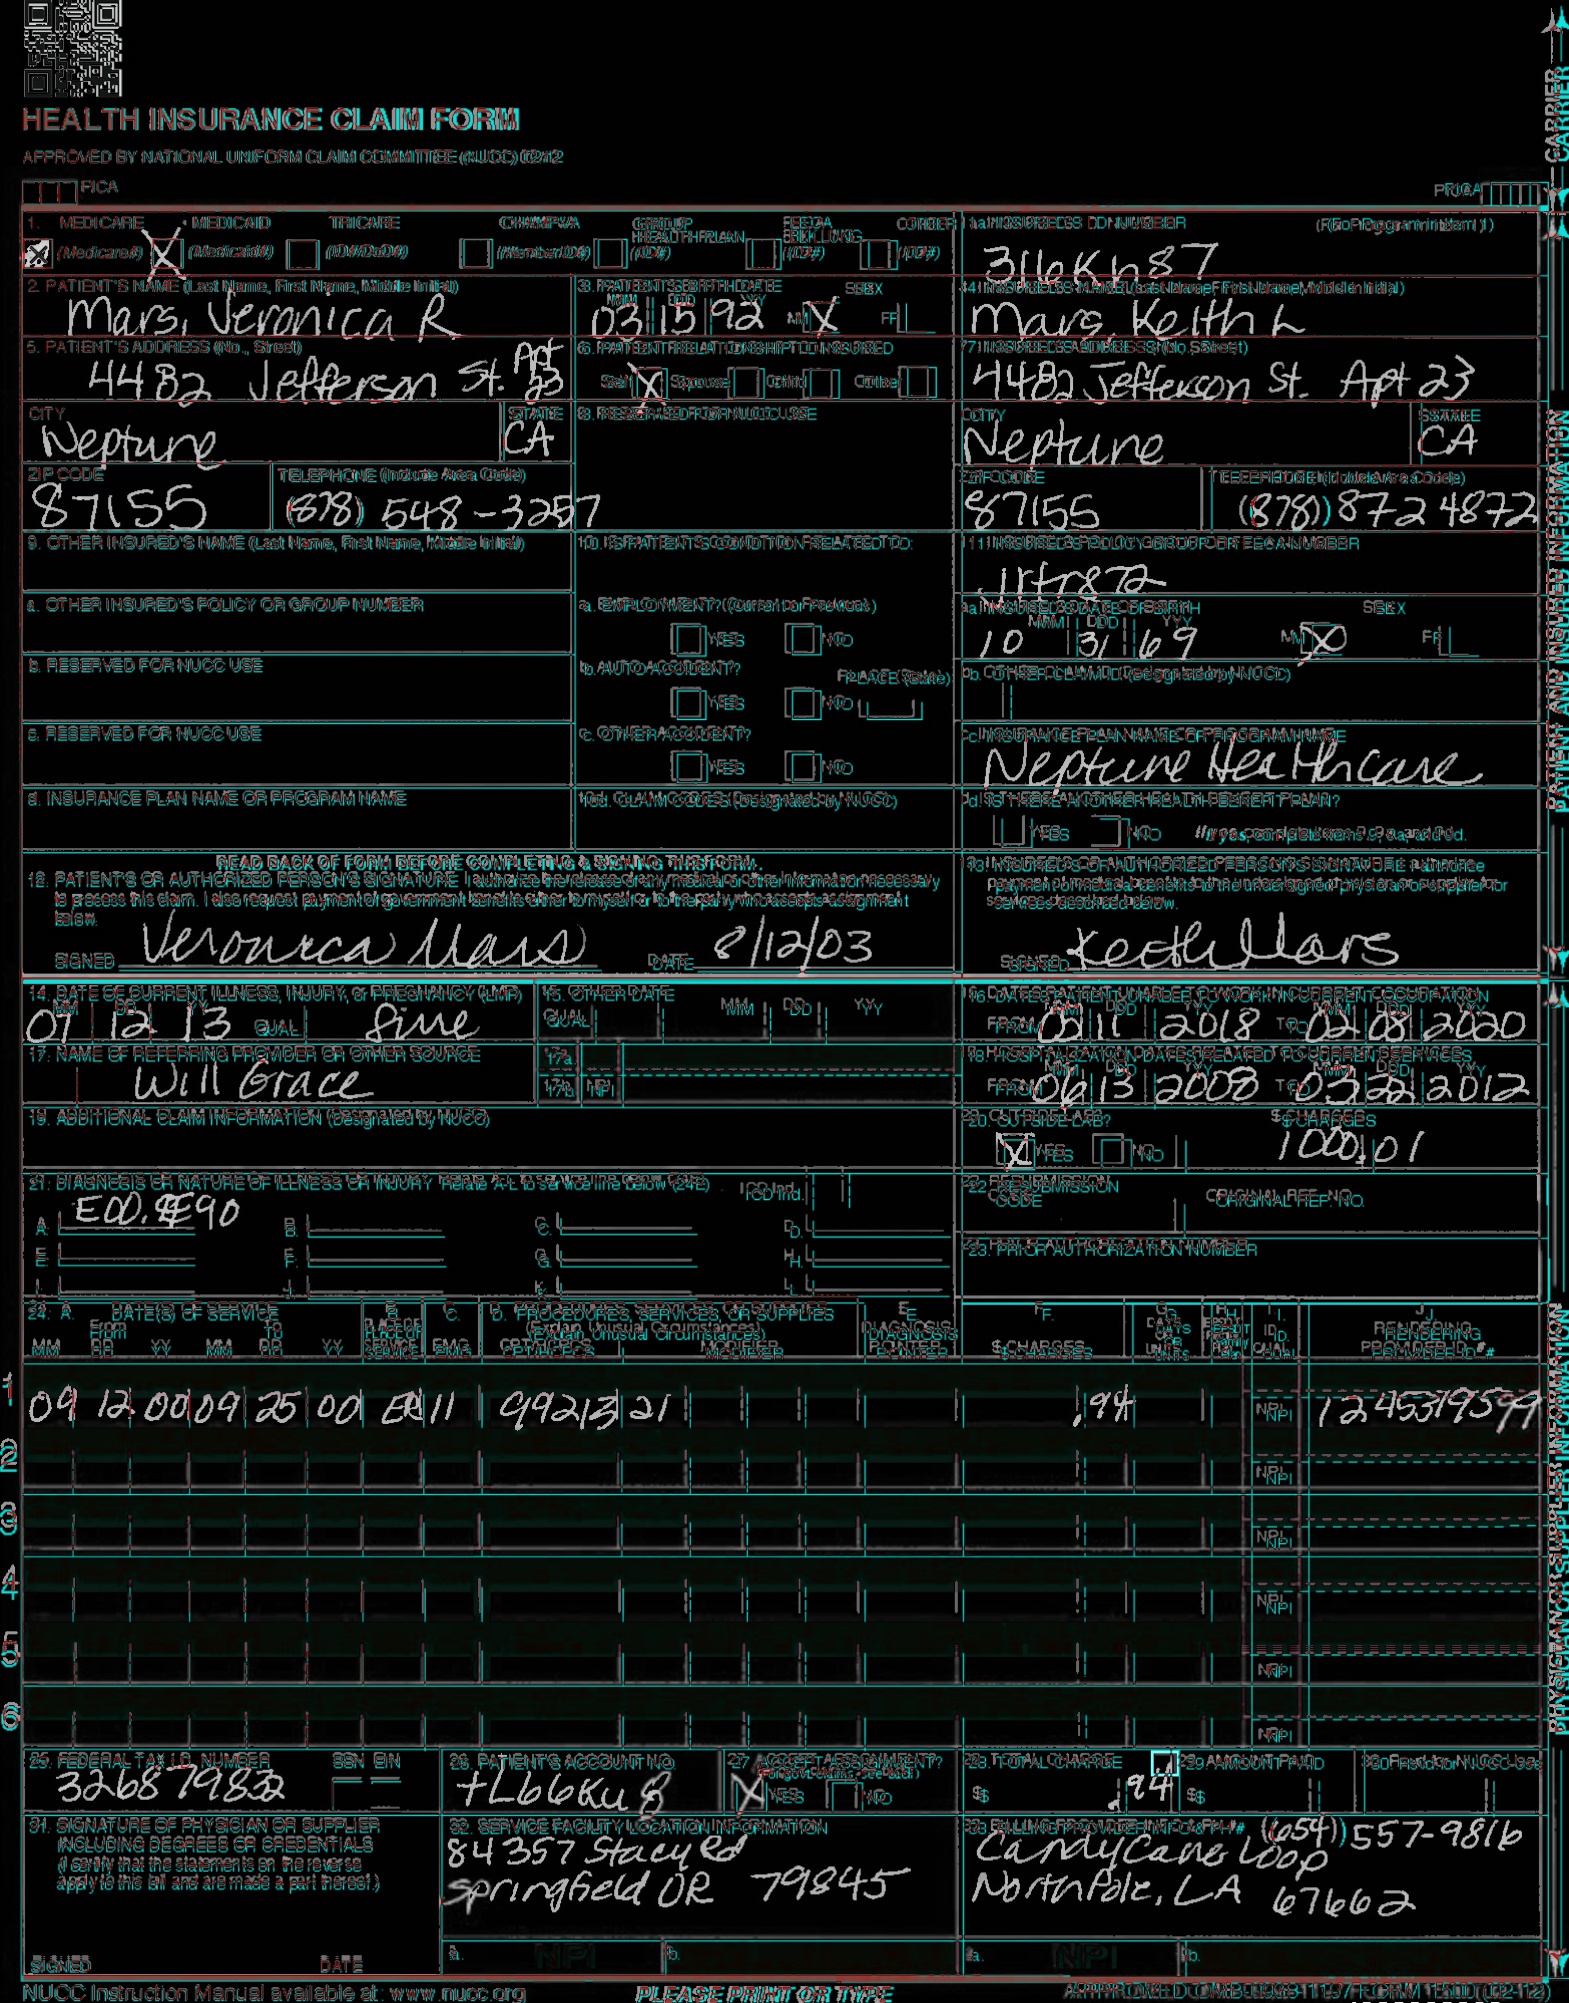 HEALTH INSURANCE CLAIM FORM
APPROVED BY NATIONAL UNIFORM CLAIM COMMITTEE (NUCC) 02/12
PICA
PICA
CARRIER
1. MEDICARE MEDICAID TRICARE CHAMPVA GROUP HEALTH PLAN FECA BLK LUNG OTHER
(Medicare#) (Medicaid#) (ID#/DoD#) (Member ID#) (ID#) (ID#) (ID#)
1a. INSURED'S I.D. NUMBER (For Program in Item 1)
316Kh87
2. PATIENT'S NAME (Last Name, First Name, Middle Initial)
Mars, Veronica R
3. PATIENT'S BIRTH DATE SEX
MM DD YY
03 15 92 M X F
4. INSURED'S NAME (Last Name, First Name, Middle Initial)
Mars, Keith L
5. PATIENT'S ADDRESS (No., Street)
4482 Jefferson St. Apt 23
6. PATIENT RELATIONSHIP TO INSURED
Self X Spouse Child Other
7. INSURED'S ADDRESS (No., Street)
4482 Jefferson St. Apt 23
CITY STATE
Neptune CA
8. RESERVED FOR NUCC USE
CITY STATE
Neptune CA
ZIP CODE TELEPHONE (Include Area Code)
87155 (878) 548-3257
ZIP CODE TELEPHONE (Include Area Code)
87155 (878) 872 4872
9. OTHER INSURED'S NAME (Last Name, First Name, Middle Initial)
10. IS PATIENT'S CONDITION RELATED TO:
11. INSURED'S POLICY GROUP OR FECA NUMBER
a. OTHER INSURED'S POLICY OR GROUP NUMBER
a. EMPLOYMENT? (Current or Previous)
YES NO
a. INSURED'S DATE OF BIRTH SEX
MM DD YY
10 31 69 M X F
b. RESERVED FOR NUCC USE
b. AUTO ACCIDENT? PLACE (State)
YES NO
b. OTHER CLAIM ID (Designated by NUCC)
c. RESERVED FOR NUCC USE
c. OTHER ACCIDENT?
YES NO
c. INSURANCE PLAN NAME OR PROGRAM NAME
Neptune Healthcare
d. INSURANCE PLAN NAME OR PROGRAM NAME
10d. CLAIM CODES (Designated by NUCC)
d. IS THERE ANOTHER HEALTH BENEFIT PLAN?
YES NO If yes, complete items 9, 9a, and 9d.
PATIENT AND INSURED INFORMATION
READ BACK OF FORM BEFORE COMPLETING & SIGNING THIS FORM.
12. PATIENT'S OR AUTHORIZED PERSON'S SIGNATURE I authorize the release of any medical or other information necessary
to process this claim. I also request payment of government benefits either to myself or to the party who accepts assignment
below.
SIGNED Veronica Mars DATE 8/12/03
13. INSURED'S OR AUTHORIZED PERSON'S SIGNATURE I authorize
payment of medical benefits to the undersigned physician or supplier for
services described below.
SIGNED Keith Mars
14. DATE OF CURRENT ILLNESS, INJURY, or PREGNANCY (LMP)
MM DD YY
12 13 QUAL.
15. OTHER DATE
QUAL. MM DD YY
16. DATES PATIENT UNABLE TO WORK IN CURRENT OCCUPATION
MM DD YY MM DD YY
FROM 02 11 2018 TO 02 08 2020
17. NAME OF REFERRING PROVIDER OR OTHER SOURCE
Will Grace
17a.
17b. NPI
18. HOSPITALIZATION DATES RELATED TO CURRENT SERVICES
MM DD YY MM DD YY
FROM 06 13 2008 TO 03 22 2012
19. ADDITIONAL CLAIM INFORMATION (Designated by NUCC)
20. OUTSIDE LAB? $ CHARGES
X YES NO 1000.01
21. DIAGNOSIS OR NATURE OF ILLNESS OR INJURY Relate A-L to service line below (24E) ICD Ind.
A. B. C. D.
E. F. G. H.
I. J. K. L.
22. RESUBMISSION CODE ORIGINAL REF. NO.
23. PRIOR AUTHORIZATION NUMBER
24. A. DATE(S) OF SERVICE B. C. D. PROCEDURES, SERVICES, OR SUPPLIES E. F. G. H. I. J.
From To PLACE OF (Explain Unusual Circumstances) DIAGNOSIS DAYS ID. RENDERING
MM DD YY MM DD YY SERVICE EMG CPT/HCPCS MODIFIER POINTER $ CHARGES UNITS QUAL. PROVIDER ID. #
1 09 12 00 09 25 00 11 99213 21 .94 NPI 12453195 99
2 NPI
3 NPI
4 NPI
5 NPI
6 NPI
PHYSICIAN OR SUPPLIER INFORMATION
25. FEDERAL TAX I.D. NUMBER SSN EIN
326879832
26. PATIENT'S ACCOUNT NO.
27. ACCEPT ASSIGNMENT?
(For govt. claims, see back)
X YES NO
28. TOTAL CHARGE
$ .94
29. AMOUNT PAID
$
30. Rsvd for NUCC Use
31. SIGNATURE OF PHYSICIAN OR SUPPLIER
INCLUDING DEGREES OR CREDENTIALS
(I certify that the statements on the reverse
apply to this bill and are made a part thereof.)
SIGNED DATE
32. SERVICE FACILITY LOCATION INFORMATION
84357 Stacy Rd
Springfield OR 79845
a. NPI b.
33. BILLING PROVIDER INFO & PH # (654) 557-9816
CandyCane Loop
NorthPole, LA 67662
a. NPI b.
NUCC Instruction Manual available at: www.nucc.org
PLEASE PRINT OR TYPE